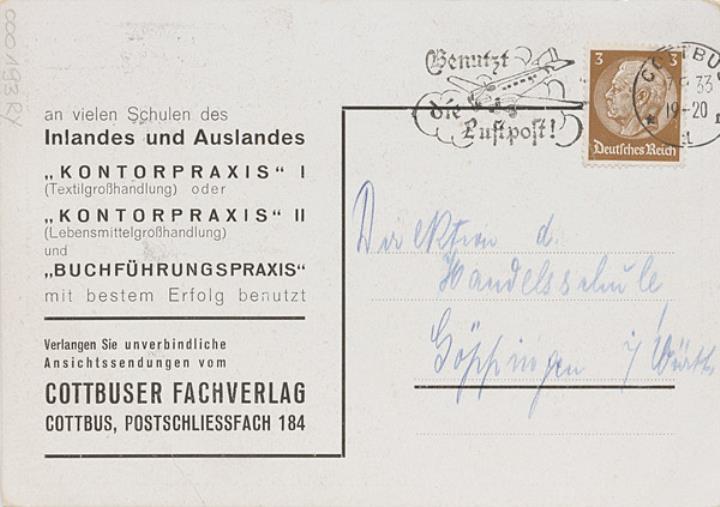 000193RY
an vielen Schulen des
Inlandes und Auslandes
„KONTORPRAXIS“ I
(Textilgroßhandlung) oder
„KONTORPRAXIS“ II
(Lebensmittelgroßhandlung)
und
„BUCHFÜHRUNGSPRAXIS“
mit bestem Erfolg benutzt
Verlangen Sie unverbindliche
Ansichtssendungen vom
COTTBUSER FACHVERLAG
COTTBUS, POSTSCHLIESSFACH 184
Benutzt
die
Luftpost!
3 3
Deutsches Reich
COTTBU
33
19-20
Direktion d.
Handelsschule
Göppingen i/Württ.